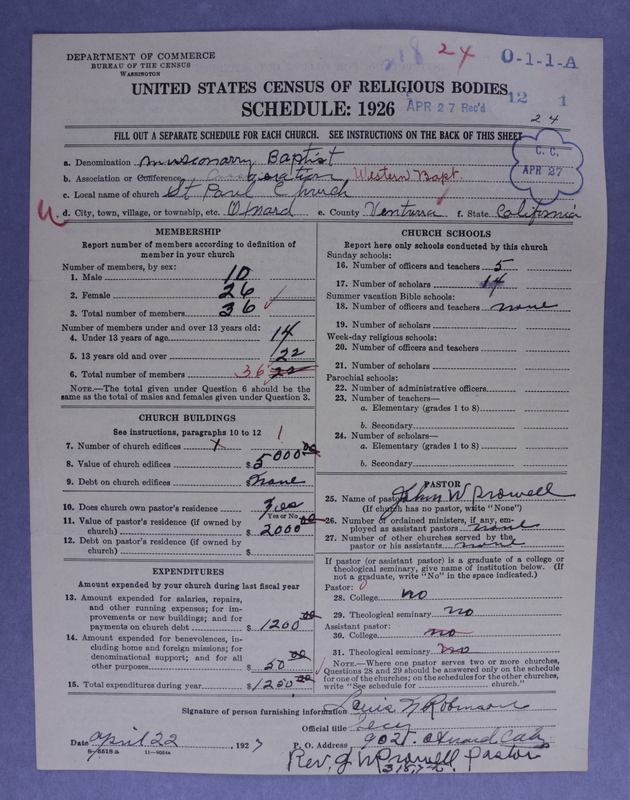 DEPARTMENT OF COMMERCE
BUREAU OF THE CENSUS
WASHINGTON
218 24 0-1-1-A
UNITED STATES CENSUS OF RELIGIOUS BODIES
SCHEDULE: 1926
APR 27 Rec'd 12 1
24
FILL OUT A SEPARATE SCHEDULE FOR EACH CHURCH. SEE INSTRUCTIONS ON THE BACK OF THIS SHEET
C. C.
APR 27
a. Denomination Missonarry Baptist
b. Association or Conference Western Bapt.
c. Local name of church St Paul Church
d. City, town, village, or township, etc. Oxnard e. County Venturra f. State California
MEMBERSHIP
Report number of members according to definition of member in your church
Number of members, by sex:
1. Male 10
2. Female 26
3. Total number of members 36
Number of members under and over 13 years old:
4. Under 13 years of age 14
5. 13 years old and over 22
6. Total number of members 36 22
NOTE.—The total given under Question 6 should be the same as the total of males and females given under Question 3.
CHURCH BUILDINGS
See instructions, paragraphs 10 to 12
7. Number of church edifices x 1
8. Value of church edifices $ 5000 00
9. Debt on church edifices $ None
10. Does church own pastor's residence Yes
Yes or No
11. Value of pastor's residence (if owned by church) $ 2000 00
12. Debt on pastor's residence (if owned by church) $
EXPENDITURES
Amount expended by your church during last fiscal year
13. Amount expended for salaries, repairs, and other running expenses; for improvements or new buildings; and for payments on church debt $ 1200 00
14. Amount expended for benevolences, including home and foreign missions; for denominational support; and for all other purposes $ 50 00
15. Total expenditures during year $ 1250 00
CHURCH SCHOOLS
Report here only schools conducted by this church
Sunday schools:
16. Number of officers and teachers 5
17. Number of scholars 14
Summer vacation Bible schools:
18. Number of officers and teachers none
19. Number of scholars
Week-day religious schools:
20. Number of officers and teachers
21. Number of scholars
Parochial schools:
22. Number of administrative officers
23. Number of teachers—
a. Elementary (grades 1 to 8)
b. Secondary
24. Number of scholars—
a. Elementary (grades 1 to 8)
b. Secondary
PASTOR
25. Name of pastor John W Prowell
(If church has no pastor, write "None")
26. Number of ordained ministers, if any, employed as assistant pastors none
27. Number of other churches served by the pastor or his assistants none
If pastor (or assistant pastor) is a graduate of a college or theological seminary, give name of institution below. (If not a graduate, write "No" in the space indicated.)
Pastor:
28. College no
29. Theological seminary no
Assistant pastor:
30. College no
31. Theological seminary no
NOTE.—Where one pastor serves two or more churches, Questions 28 and 29 should be answered only on the schedule for one of the churches; on the schedules for the other churches, write "See schedule for church."
Signature of person furnishing information Louis N Robinson
Official title Secy
Date April 22, 1927 P. O. Address Oxnard Cal
8-5518a
Rev. J W Prowell Pastor